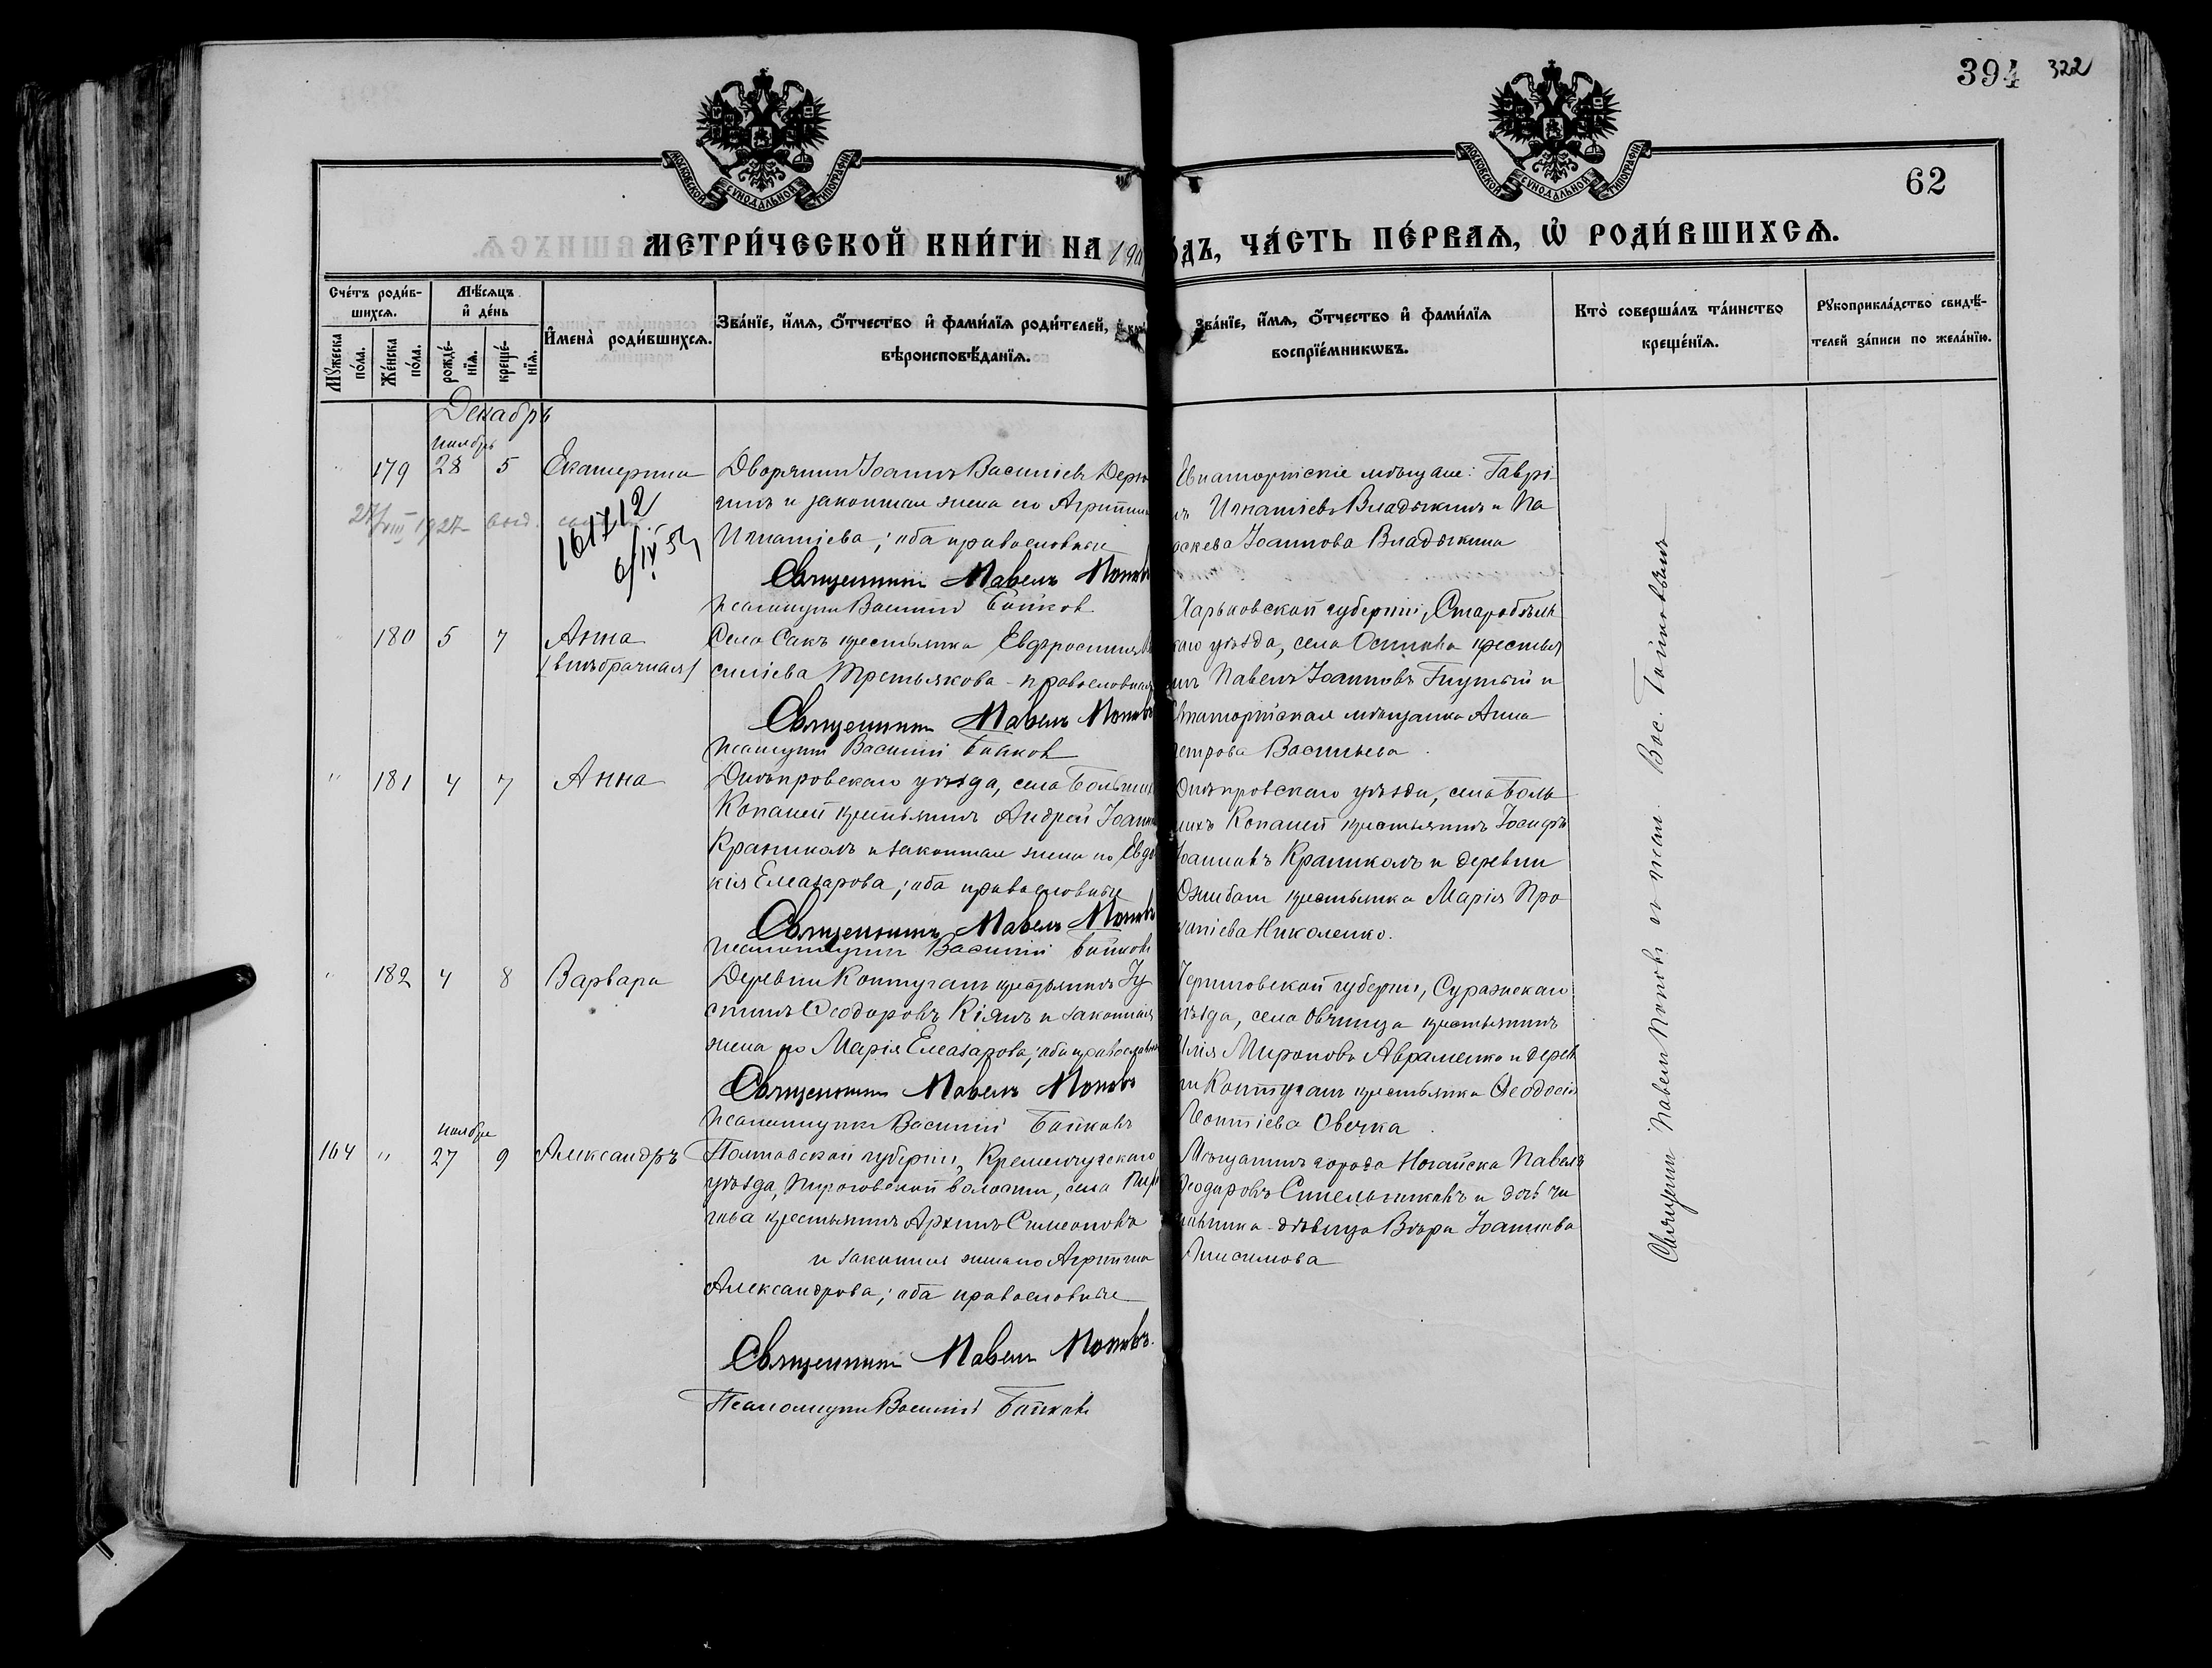 394 322
МОСКОВСКОЙ СѴНОДАЛЬНОЙ ТИПОГРАФІИ
МОСКОВСКОЙ СѴНОДАЛЬНОЙ ТИПОГРАФІИ
62
МЕТРИ́ЧЕСКОЙ КНИ́ГИ НА 190
ДЪ, ЧА́СТЬ ПЕ́РВАѦ, Ѡ҆ РОДИ́ВШИХСѦ.
Сче́тъ роди́в-
шихсѧ.
Мꙋ́жеска по́ла.
Же́нска по́ла.
Мѣ́сѧцъ
и҆ де́нь
рожде́-
нїѧ.
креще́-
нїѧ.
И҆мена̀ роди́вшихсѧ.
Зва́нїе, и҆́мѧ, ѻ҆́тчество и҆ фами́лїѧ роди́телей,
вѣроисповѣ́данїѧ.
Зва́нїе, и҆́мѧ, ѻ҆́тчество и҆ фами́лїѧ
воспрїе́мникѡвъ.
Кто̀ соверша́лъ та́инство
креще́нїѧ.
Рꙋкоприкла́дство свидѣ́-
телей за́писи по жела́нїю.
Декабрь
ноябрь
" 179 28 5 Екатерина
27/VIII 1927 выд.
161712
6/IV 52
Дворянинъ Іоаннъ Василіевъ Дерю
гинъ и законная жена его Агриппина
Игнатіева; оба православные
Священникъ Павелъ Поповъ
Псаломщикъ Василій Байковъ
Евпаторійскіе мѣщане: Гаврі
лъ Игнатіевъ Владыкинъ и Па
раскева Іоаннова Владыкина
" 180 5 7 Анна
/внѣбрачная/
Села Сакъ крестьянка Евфросинія Ва
силіева Третьякова - православная
Священникъ Павелъ Поповъ
Псаломщикъ Василій Байковъ
Харьковской губерніи, Старобѣль
скаго уѣзда, села Осинова крестья
нинъ Павелъ Іоанновъ Гнутый и
Евпаторійская мѣщанка Анна
Петрова Васильева.
" 181 4 7 Анна
Днѣпровскаго уѣзда, села Большихъ
Копаней крестьянинъ Андрей Іоанновъ
Краниколъ и законная жена его Евдо
кія Елеазарова; оба православные
Священникъ Павелъ Поповъ
Псаломщикъ Василій Байковъ
Днѣпровскаго уѣзда, села Боль
шихъ Копаней крестьянинъ Іосифъ
Іоанновъ Краниколъ и деревни
крестьянка Марія Про
копіева Николенко.
" 182 4 8 Варвара
Деревни Контуганъ крестьянинъ Іу
стинъ Ѳеодоровъ Кіянъ и законная
жена его Марія Елеазарова; оба православные
Священникъ Павелъ Поповъ
Псаломщикъ Василій Байковъ
Черниговской губерніи, Суражскаго
уѣзда, села Овчинца крестьянинъ
Илія Мироновъ Авраменко и дерев
ни Контуганъ крестьянка Ѳеодосія
Леонтіева Овечка.
ноября
164 " 27 9 Александръ
Полтавской губерніи, Кременчугскаго
уѣзда, Пироговской волости, села Пиро
гова крестьянинъ Архипъ Симеоновъ
и законная жена его Агриппина
Александрова; оба православные
Священникъ Павелъ Поповъ.
Псаломщикъ Василій Байковъ
Мѣщанинъ города Ногайска Павелъ
Ѳеодоровъ Синельниковъ и дочь чи
новника - дѣвица Вѣра Іоаннова
Анисимова
Священникъ Павелъ Поповъ съ псал. Вас. Байковымъ